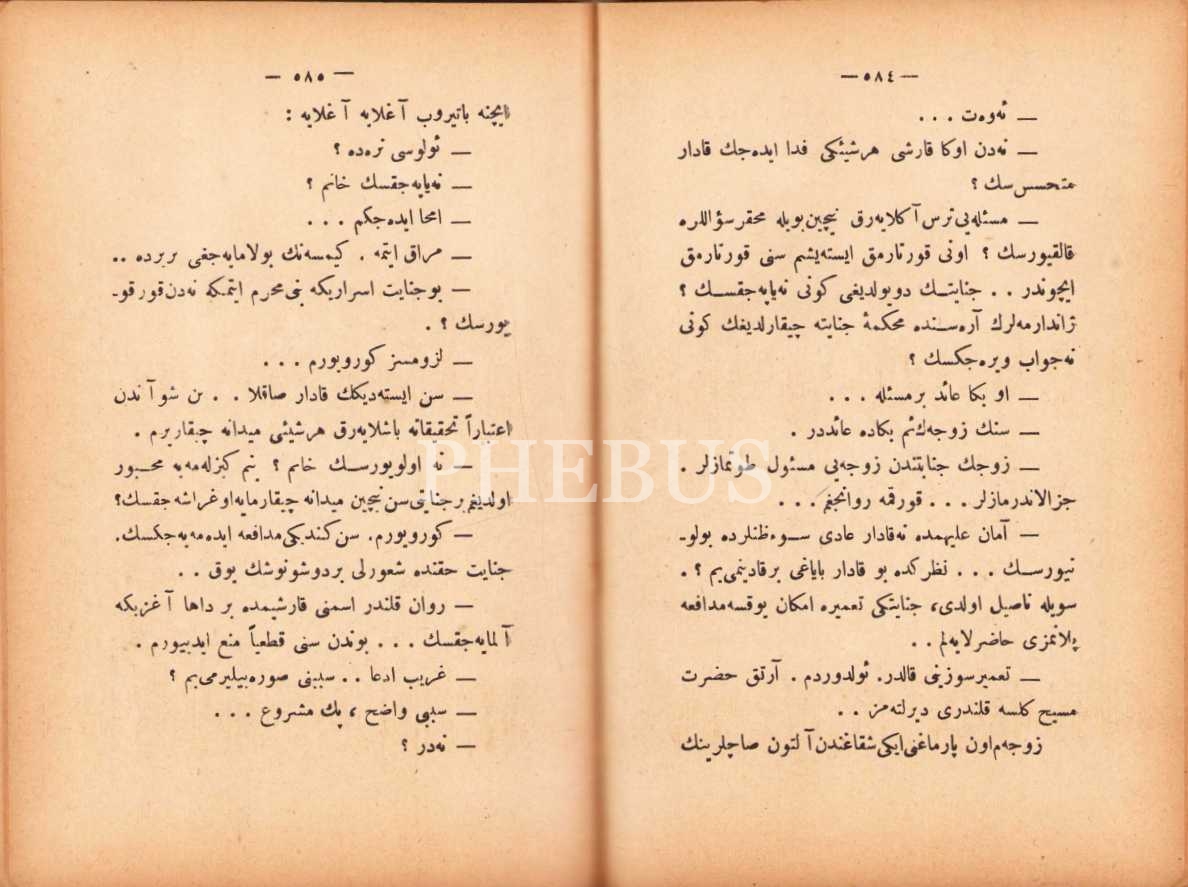 — ٥٨٤ —
— ئه‌وه‌ت . . .
— نه‌دن اوكا قارشی هرشیئكی فدا ایده‌جك قادار
متحسس سك ؟
— مسئله‌یی ترس آ كلایه‌رق نیچین بویله محقر سؤاللره
قالقیورسك ؟ اونی قورتارمق ایسته‌یشم سنی قورتارمق
ایچوندر . . جنایتـــك دویولدیغی كونی نه‌یاپه‌جقســـك ؟
ژاندارمه‌لرك آره‌ســنده محكمهٔ جنایته چیقارلدیغك كونی
نه‌جواب ویره‌جكسك ؟
— او بكا عائد بر مسئله . . .
— سنك زوجه‌ك‌ئم بكاده عائددر .
— زوجك جنایتندن زوجه‌یی مسئول طوتمازلر .
جزالاندرمازلر . . . قورقمه روانجغم . . .
— آمان علیهمده نه‌قادار عادی ســوءظنلرده بولو-
نیورســك . . . نظركده بو قادار بایاغی برقادینمی‌یم ؟ .
سویله ناصیل اولدی، جنایتكی تعمیره امكان یوقسه‌مدافعه
پلانمزی حاضرلایه‌لم . .
— تعمیرسوزینی قالدر. ئولدوردم . آرتق حضرت
مسیح كلسه قلندری دیرلته‌مز . .
زوجه‌م اون پارماغنی ایكی شقاغندن آ لتون صاچلرینك
— ٥٨٥ —
ایچنه باتیروب آ غلایه آ غلایه :
— ئولوسی نره‌ده ؟
— نه‌یاپه‌جقسك خانم ؟
— امحا ایده‌جكم . . .
— مراق ایتمه . كیمسه‌نك بولامایه‌جغی بریرده ..
— بوجنایت اسراریكه بنی محرم ایتمككه نه‌دن قورقو-
یورسك ؟ .
— لزومسز كورویورم . . .
— سن ایسته‌دیكك قادار صاقلا . . بن شو آ ندن
اعتباراً تحقیقاته باشلایه‌رق هرشیئی میدانه چیقاریرم .
— نه اولویورســك خانم ؟ بنم كیزله‌مه‌یه مجــبور
اولدیغم بر جنایتی سن نیچین میدانه چیقارمایه اوغراشه‌جقسك؟
— كورویورم. سن كندیكی مدافعه ایده‌مه‌یه‌جكسك.
جنایت حقنده شعورلی بر دوشونوشك یوق . .
— روان قلندر اسمنی قارشیمده بر داها آ غزیكه
آ لمایه‌جقسك . . . بوندن سنی قطعیاً منع ایدییورم .
— غریب ادعا . . سببنی صوره‌بیلیرمی‌یم ؟
— سببی واضح ، پك مشروع . . .
— نه‌در ؟
PHEBUS